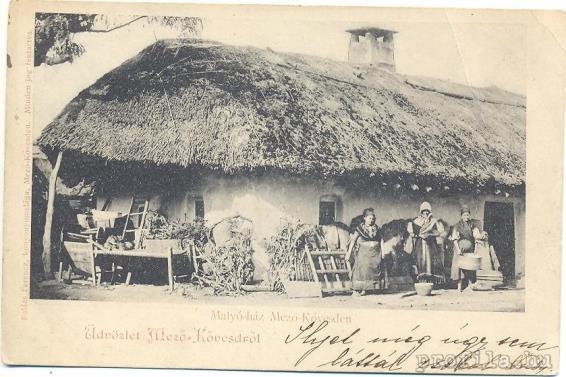 Matyó-ház Mező-Kövesden
Üdvözlet Mező-Kövesdről
Ilyet még úgy sem
láttál
profila.hu
Mező-Kövesden. Minden jog fentartva.